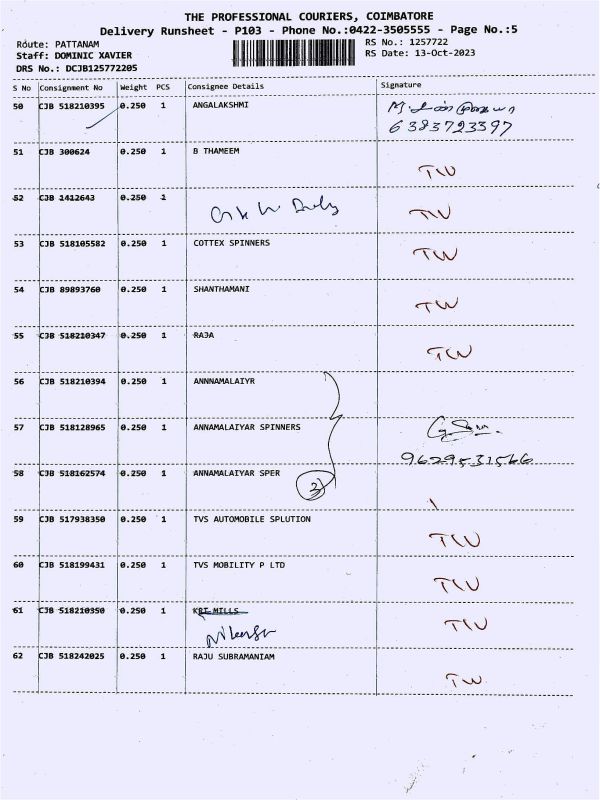 THE PROFESSIONAL COURIERS, COIMBATORE
Delivery Runsheet - P103 - Phone No.:0422-3505555 - Page No.:5
Route: PATTANAM
RS No.: 1257722
Staff: DOMINIC XAVIER
RS Date: 13-Oct-2023
DRS No.: DCJB1257722O5
S No Consignment No Weight PCS Consignee Details Signature
50 CJB 518210395 0.250 1 ANGALAKSHMI
6383723397
51 CJB 300624 0.250 1 B THAMEEM TW
52 CJB 1412643 0.250 1 TW
53 CJB 518105582 0.250 1 COTTEX SPINNERS TW
54 CJB 89893760 0.250 1 SHANTHAMANI TW
55 CJB 518210347 0.250 1 RAJA TW
56 CJB 518210394 0.250 1 ANNNAMALAIYR
57 CJB 518128965 0.250 1 ANNAMALAIYAR SPINNERS
9629531566
58 CJB 518162574 0.250 1 ANNAMALAIYAR SPER 3
59 CJB 517938350 0.250 1 TVS AUTOMOBILE SPLUTION TW
60 CJB 518199431 0.250 1 TVS MOBILITY P LTD TW
61 CJB 518210350 0.250 1 KRT MILLS TW
62 CJB 518242025 0.250 1 RAJU SUBRAMANIAM TW